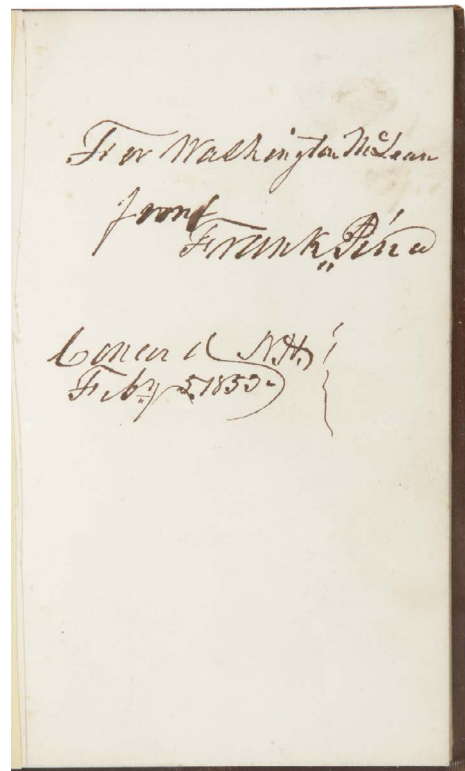 For Washington McLean
from
Frank Pierce
Concord N.H.
Feby 5 1853.